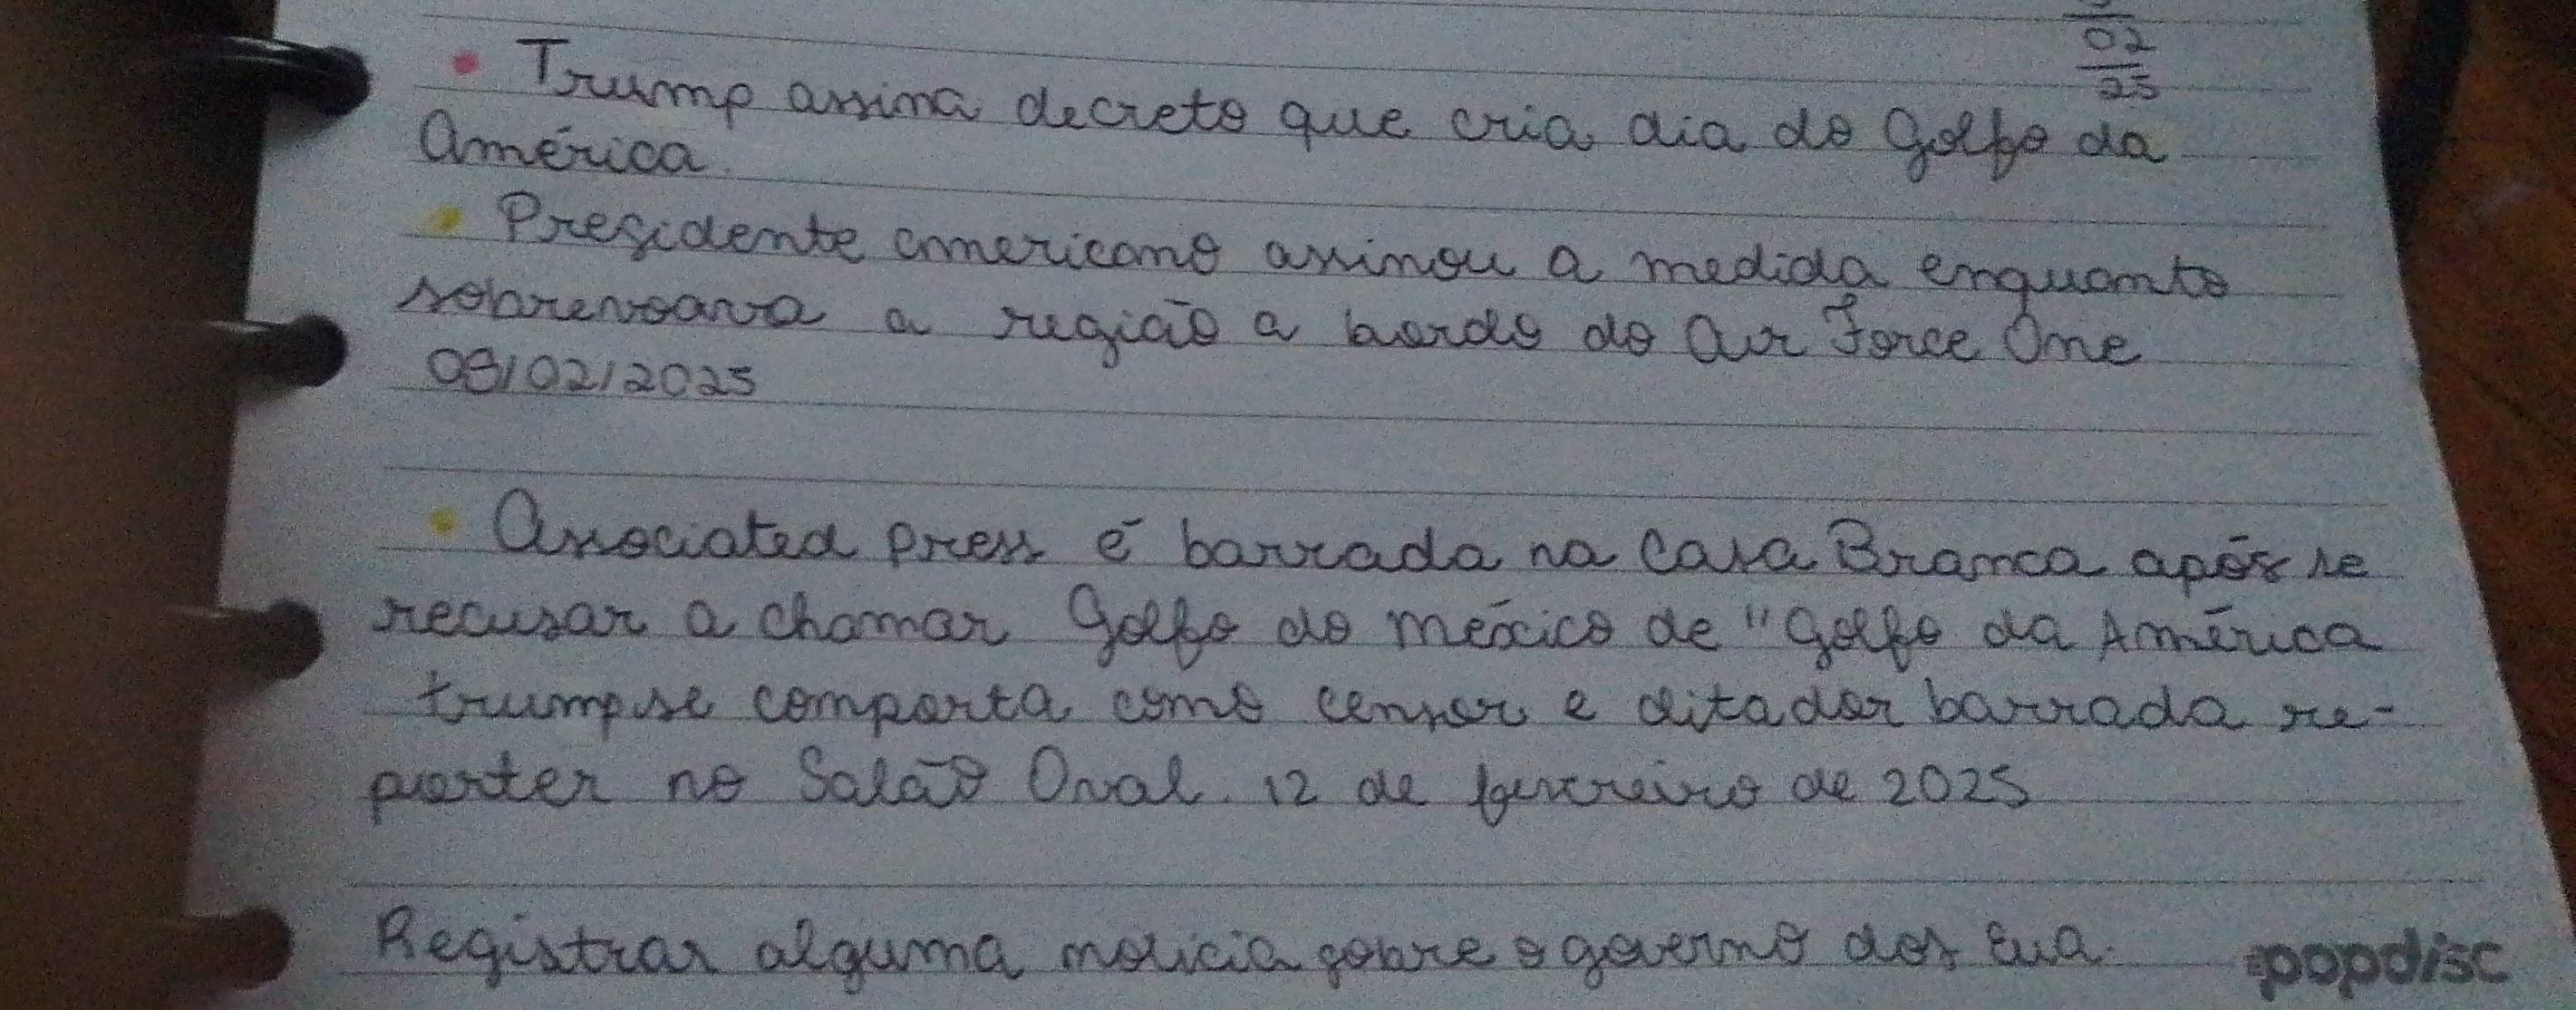 02
25
Trump assina decreto que cria dia do Golfo da
América.
Presidente americano assinou a medida enquanto
sobrevoava a região a bordo do Air Force One
09/02/2025
Associated Press é barrada na Casa Branca após se
recusar a chamar Golfo do méxico de "Golfo da América
trump se comporta como censor e ditador barrada re-
porter no Salão Oval. 12 de fevereiro de 2025
Registrar alguma noticia sobre o governo dos Eua.
popdisc